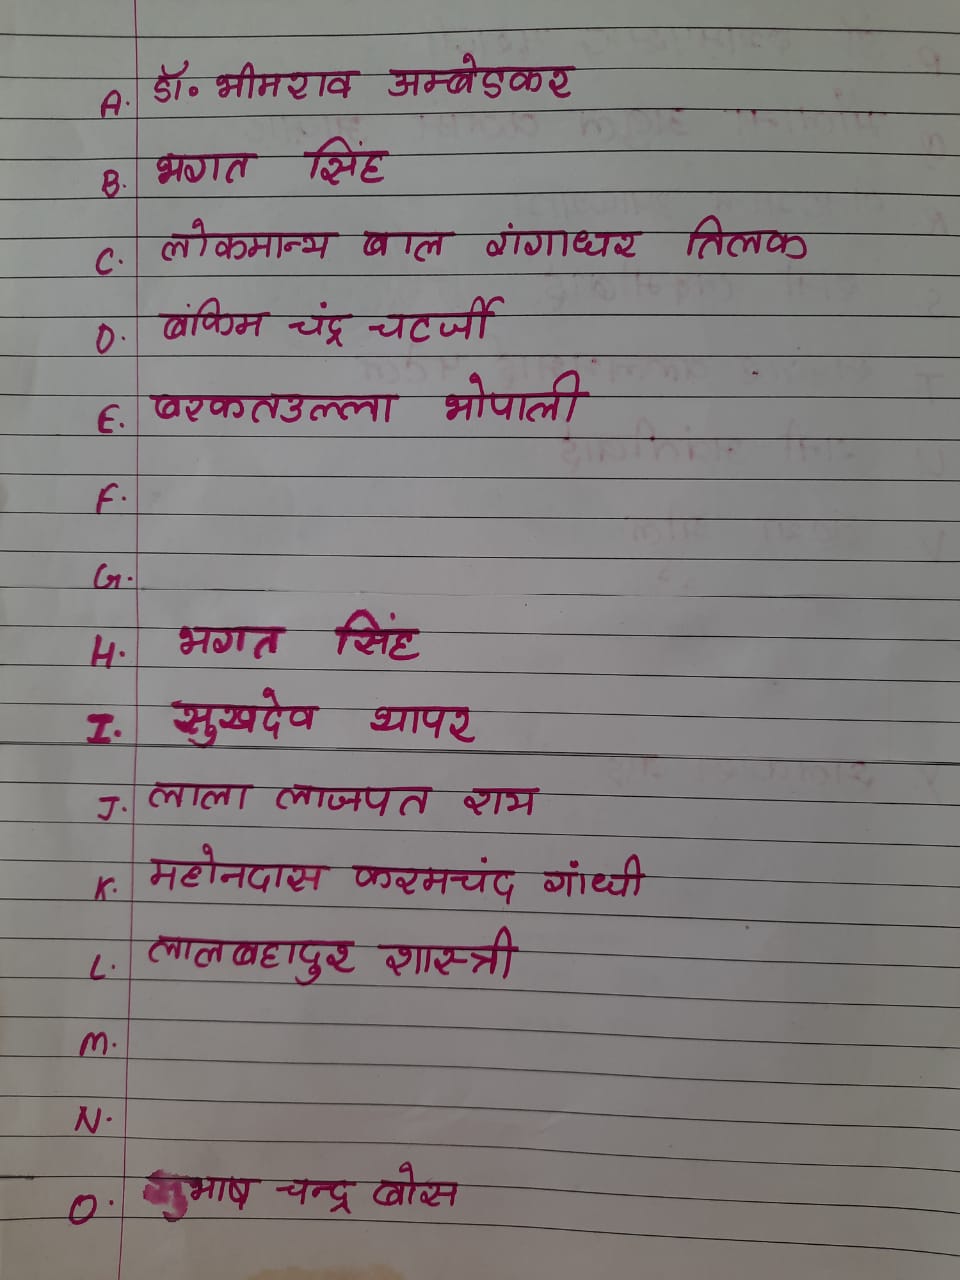 A. डॉ. भीमराव अम्बेडकर
B. भगत सिंह
C. लोकमान्य बाल गंगाधर तिलक
D. बंकिम चंद्र चटर्जी
E. बरकतउल्ला भोपाली
F.
G.
H. भगत सिंह
I. सुखदेव थापर
J. लाला लाजपत राय
K. महोनदास करमचंद गांधी
L. लालबहादुर शास्त्री
M.
N.
O. सुभाष चन्द्र बोस